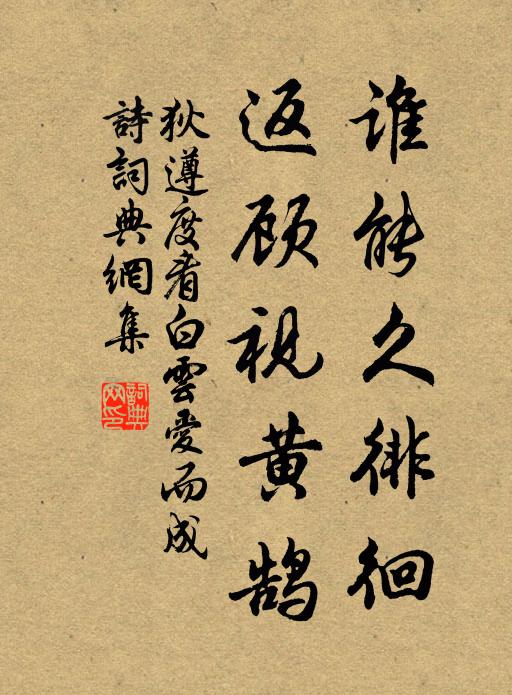 谁能久徘徊
返顾視黄鹄
狄遵度看白雲愛而成
詩詞典網集
詞典網印